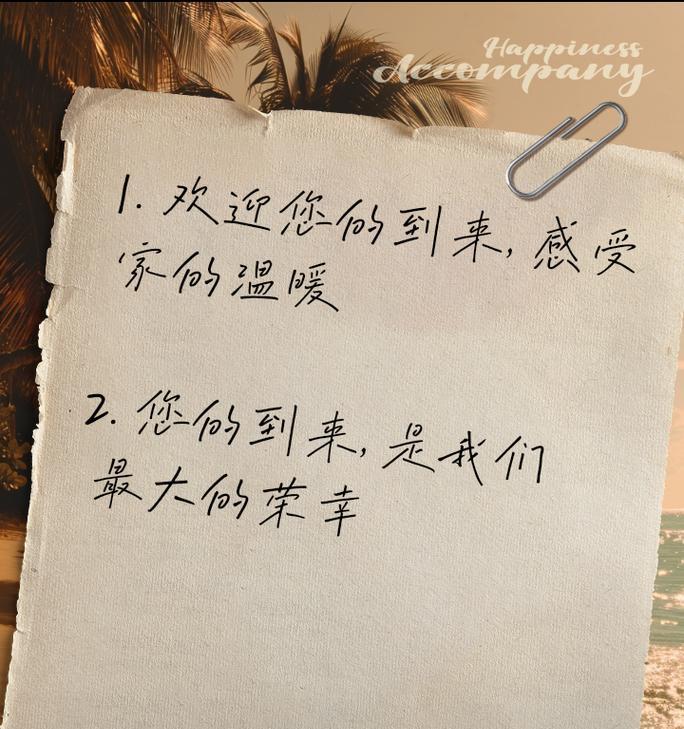 Happiness
Accompany
1. 欢迎您的到来,感受
家的温暖
2. 您的到来,是我们
最大的荣幸